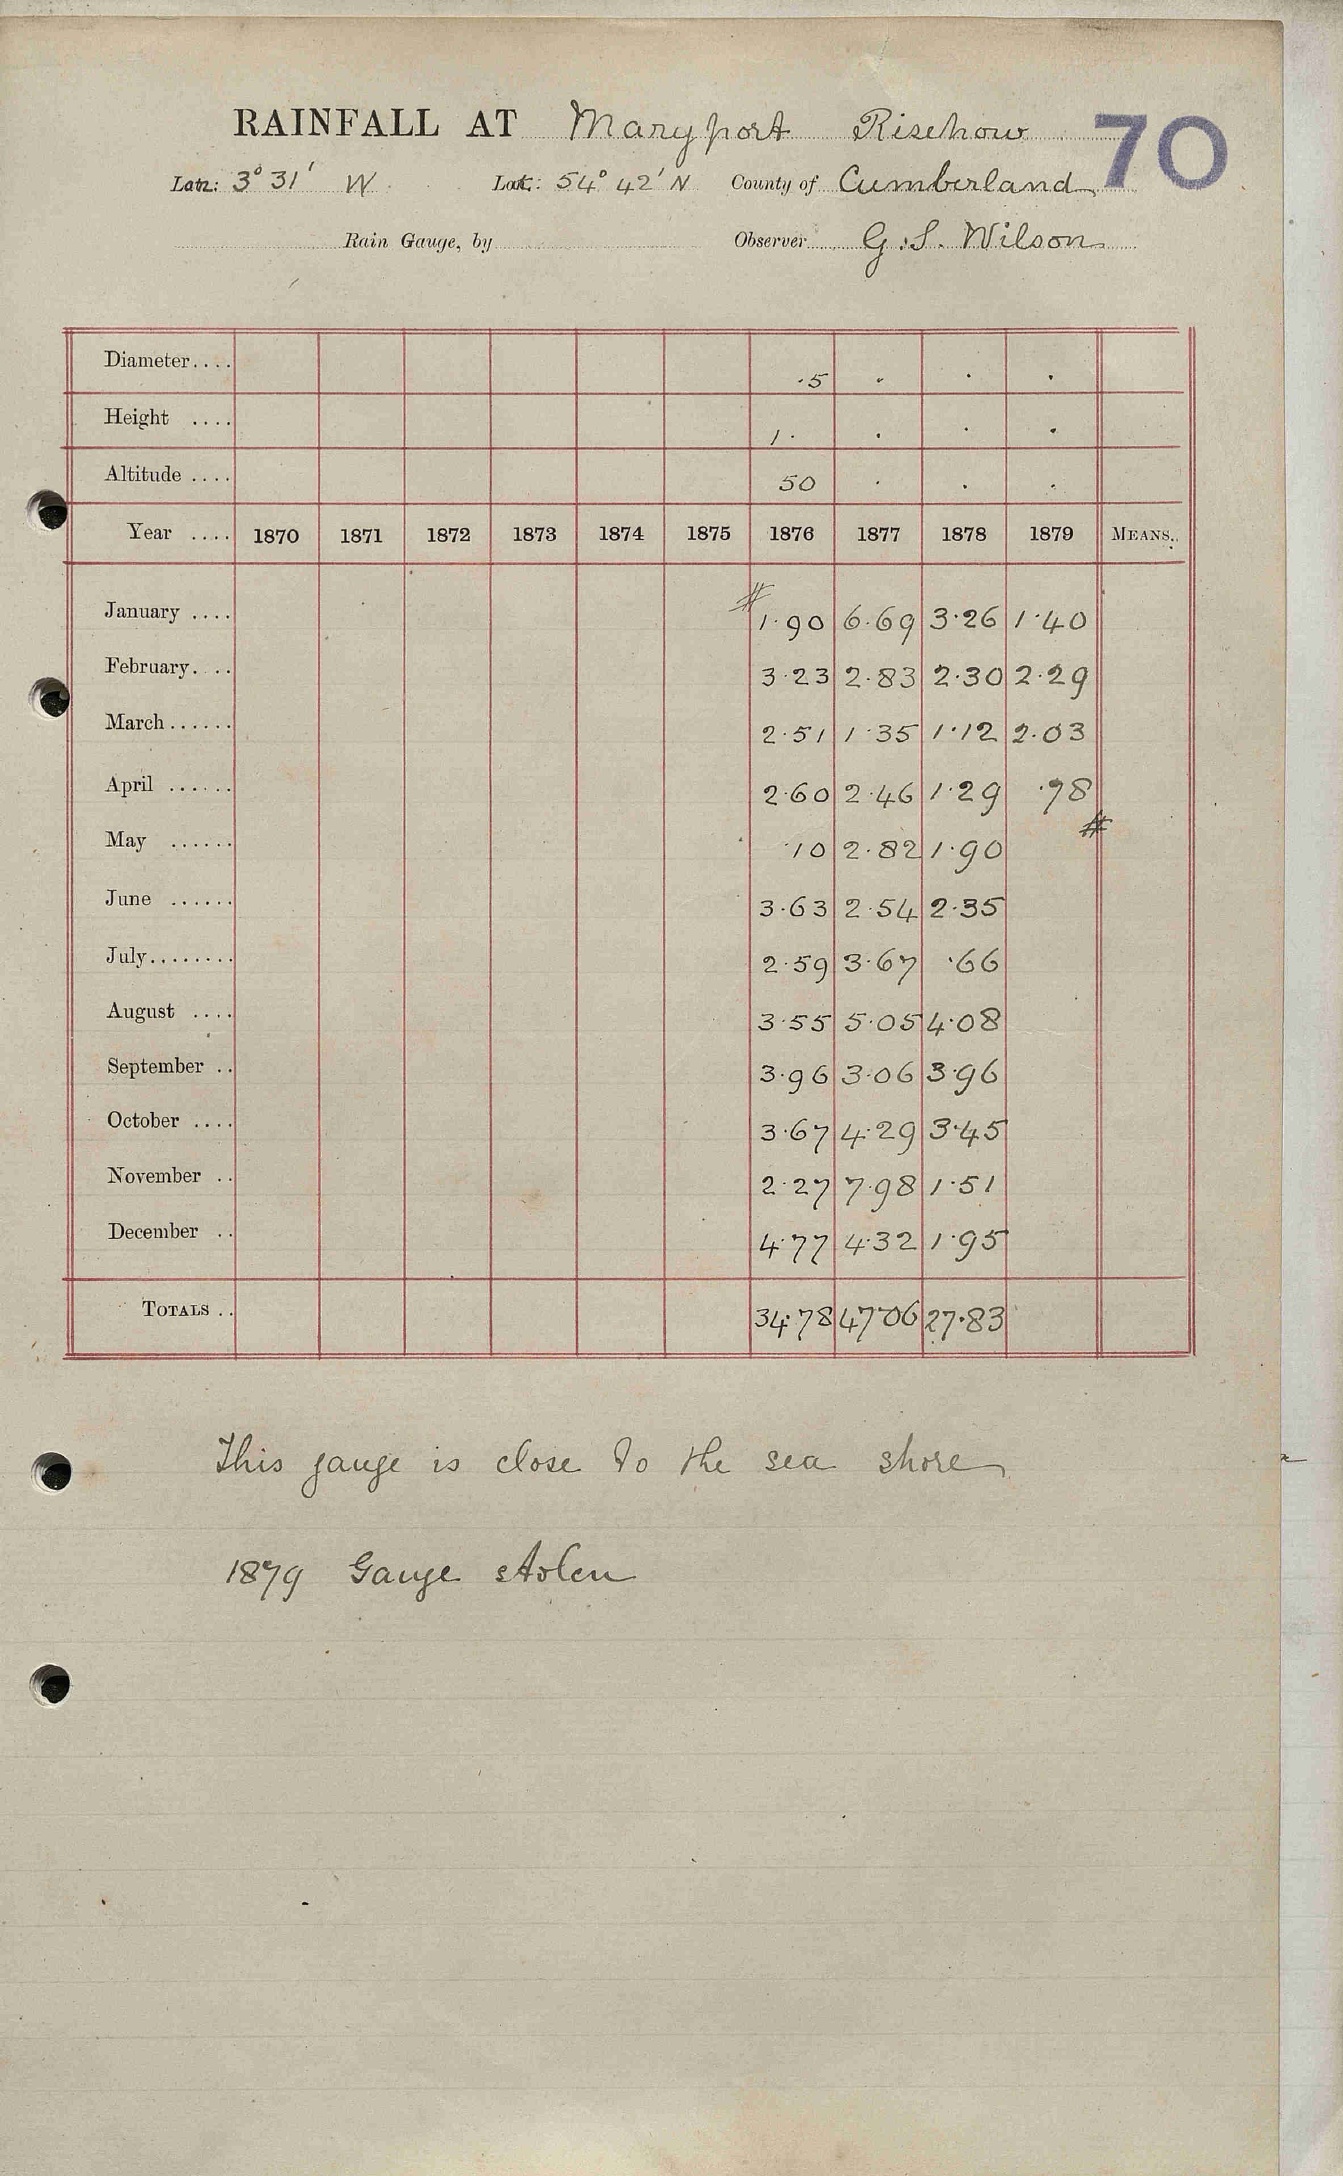 RAINFALL AT Maryport Risehow 70
3° 31' W 54° 42' N County of Cumberland
Rain Gauge, by Observer G. S. Wilson
Diameter.... ·5 . . .
Height .... 1· . . .
Altitude .... 50 . . .
Year .... 1870 1871 1872 1873 1874 1875 1876 1877 1878 1879 MEANS.
January .... # 1·90 6·69 3·26 1·40
February.... 3·23 2·83 2·30 2·29
March...... 2·51 1·35 1·12 2·03
April ...... 2·60 2·46 1·29 ·78
May ...... ·10 2·82 1·90 #
June ...... 3·63 2·54 2·35
July........ 2·59 3·67 ·66
August .... 3·55 5·05 4·08
September .. 3·96 3·06 3·96
October .... 3·67 4·29 3·45
November .. 2·27 7·98 1·51
December .. 4·77 4·32 1·95
TOTALS .. 34·78 47·06 27·83
This gauge is close to the sea shore
1879 Gauge stolen